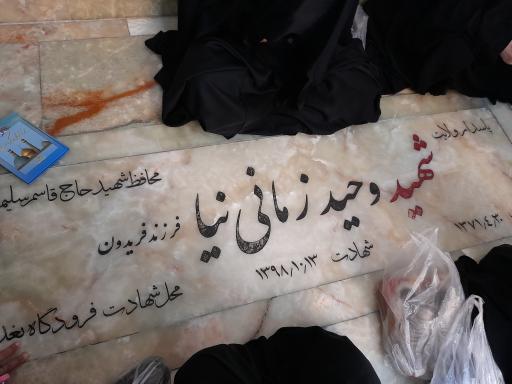 پاسدار ولایت
شهید وحید زمانی نیا
محافظ شهید حاج قاسم سلیم
فرزند فریدون
۱۳۷۱٫۴٫۲۰
شهادت ۱۳۹۸٫۱۰٫۱۳
محل شهادت فرودگاه بغد